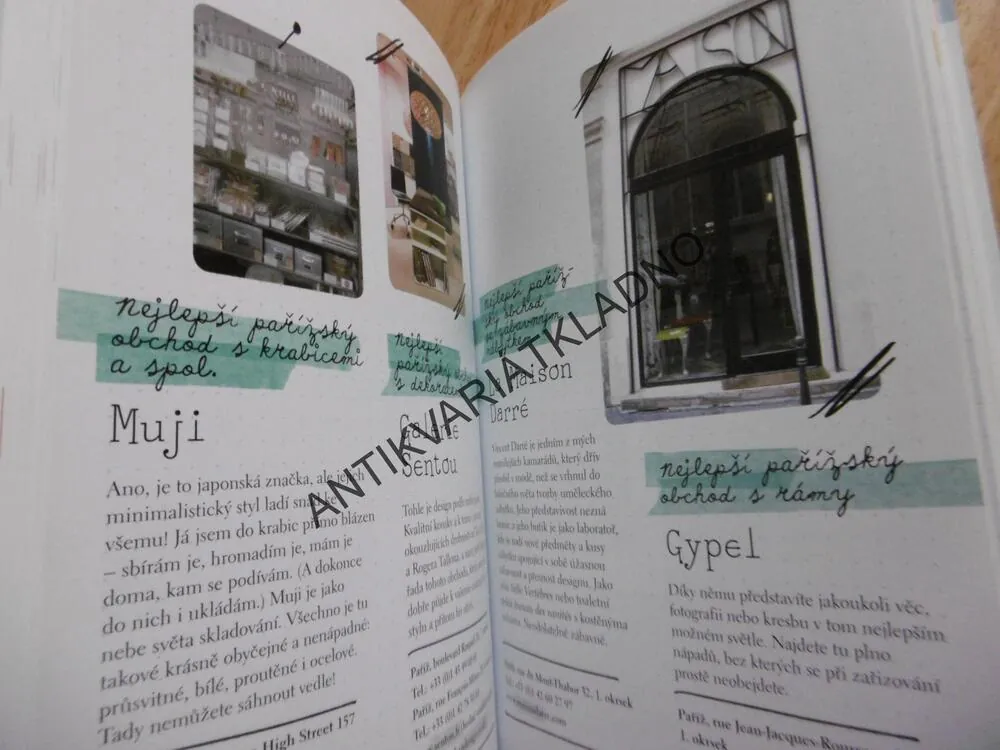 Nejlepší pařížský
obchod s krabicemi
a spol.
Muji
Ano, je to japonská značka, ale jejich
minimalistický styl ladí snad ke
všemu! Já jsem do krabic přímo blázen
– sbírám je, hromadím je, mám je
doma, kam se podívám. (A dokonce
do nich i ukládám.) Muji je jako
nebe světa skladování. Všechno je tu
takové krásně obyčejné a nenápadné:
průsvitné, bílé, proutěné i ocelové.
Tady nemůžete sáhnout vedle!
High Street 157
Nejlepší
pařížský
s dekoracemi
Galerie
Sentou
Tohle je design podle
Kvalitní kousky a k tomu
okouzlujících drobností
a Rogera Tallona, a
řada tohoto obchodu,
dobře půjde k vašemu
stylu a přitom
Paříž, boulevard
Tel.: +33 (0)1 45 49
Paříž, rue François
Tel.: +33 (0)1 47
MAISON
nejlepší paříž-
ský obchod
se zábavným
nábytkem
La Maison
Darré
Vincent Darré je jedním z mých
kamarádů, který dřív
působil v módě, než se vrhnul do
světa tvorby uměleckého
nábytku. Jeho představivost nezná
a jeho butik je jako laboratoř,
kde se rodí nové předměty a kusy
nábytku spojující v sobě úžasnou
a přesnost designu. Jako
židle Vertèbres nebo toaletní
stolek des vanités s kostěnýma
nohama. Neodolatelně zábavné.
Paříž, rue du Mont-Thabor 32, 1. okrsek
Tel.: +33 (0)1 42 60 27 97
nejlepší pařížský
obchod s rámy
Gypel
Díky němu představíte jakoukoli věc,
fotografii nebo kresbu v tom nejlepším
možném světle. Najdete tu plno
nápadů, bez kterých se při zařizování
prostě neobejdete.
Paříž, rue Jean-Jacques-Rousseau
1. okrsek
ANTIKVARIATKLADNO